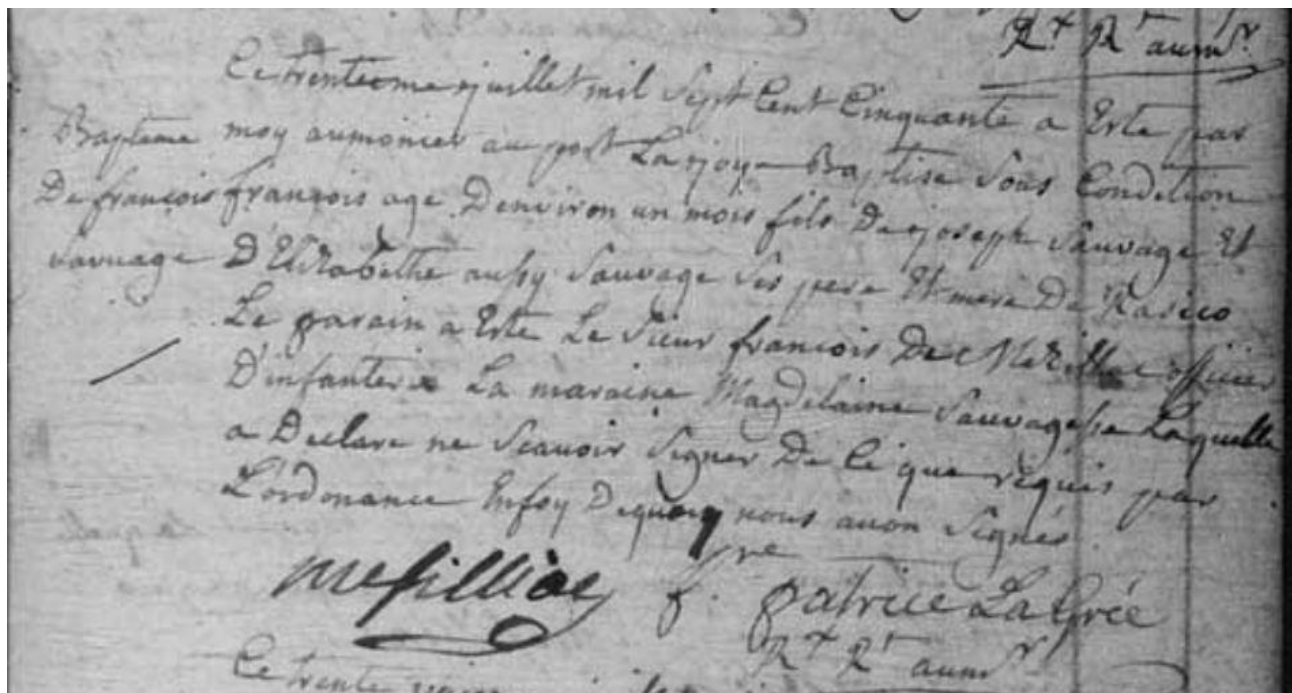 Rx Rt aumr
Ce trentieme juillet mil Sept Cent Cinquante a Este par
Bapteme moy aumonier au port Lajoye Baptise Sous Condition
De françois françois age D'environ un mois fils De joseph Sauvage Et
Sauvage D'Elizabethe aussy Sauvage Ses pere Et mere De
Le parain a Este Le Sieur françois De officier
D'infanterie La maraine Magdelaine Sauvagesse Laquelle
a Declare ne Scauoir Signer De Ce que requis par
L'ordonance Enfoy Dequoy nous auon Signés
mesilliac f. pre patrice La Grée
Rx Rt aumr
Ce trente